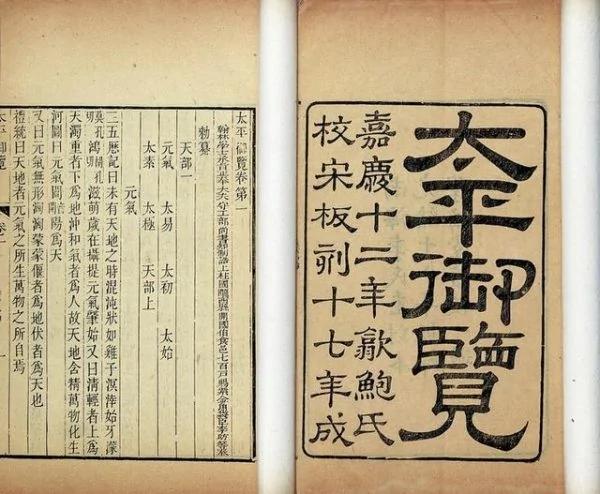 太平御覽
嘉慶十二年歙鮑氏
校宋板刻十七年成
太平御覽卷第一
翰林學士承旨正奉大夫守工部尚書知制誥上柱國隴西縣開國伯食邑七百戶賜紫金魚袋臣李昉等奉
勅纂
天部一
元氣 太易 太初 太始
太素 太極 天部上
元氣
三五厯記曰未有天地之時混沌狀如雞子溟涬始牙濛
莫孔切鴻胡孔切滋萌歲在攝提元氣肇始又曰清輕者上爲
天濁重者下爲地沖和氣者爲人故天地含精萬物化生
河圖曰元氣闓陽爲天
又曰元氣無形洶洶蒙蒙偃者爲地伏者爲天也
禮統曰天地者元氣之所生萬物之所自焉
太平御覽 卷一 一